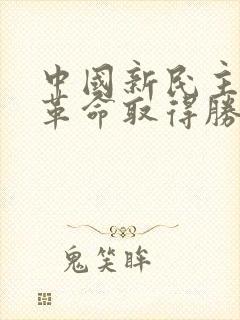 中國新民主
革命取得勝
鬼笑眸